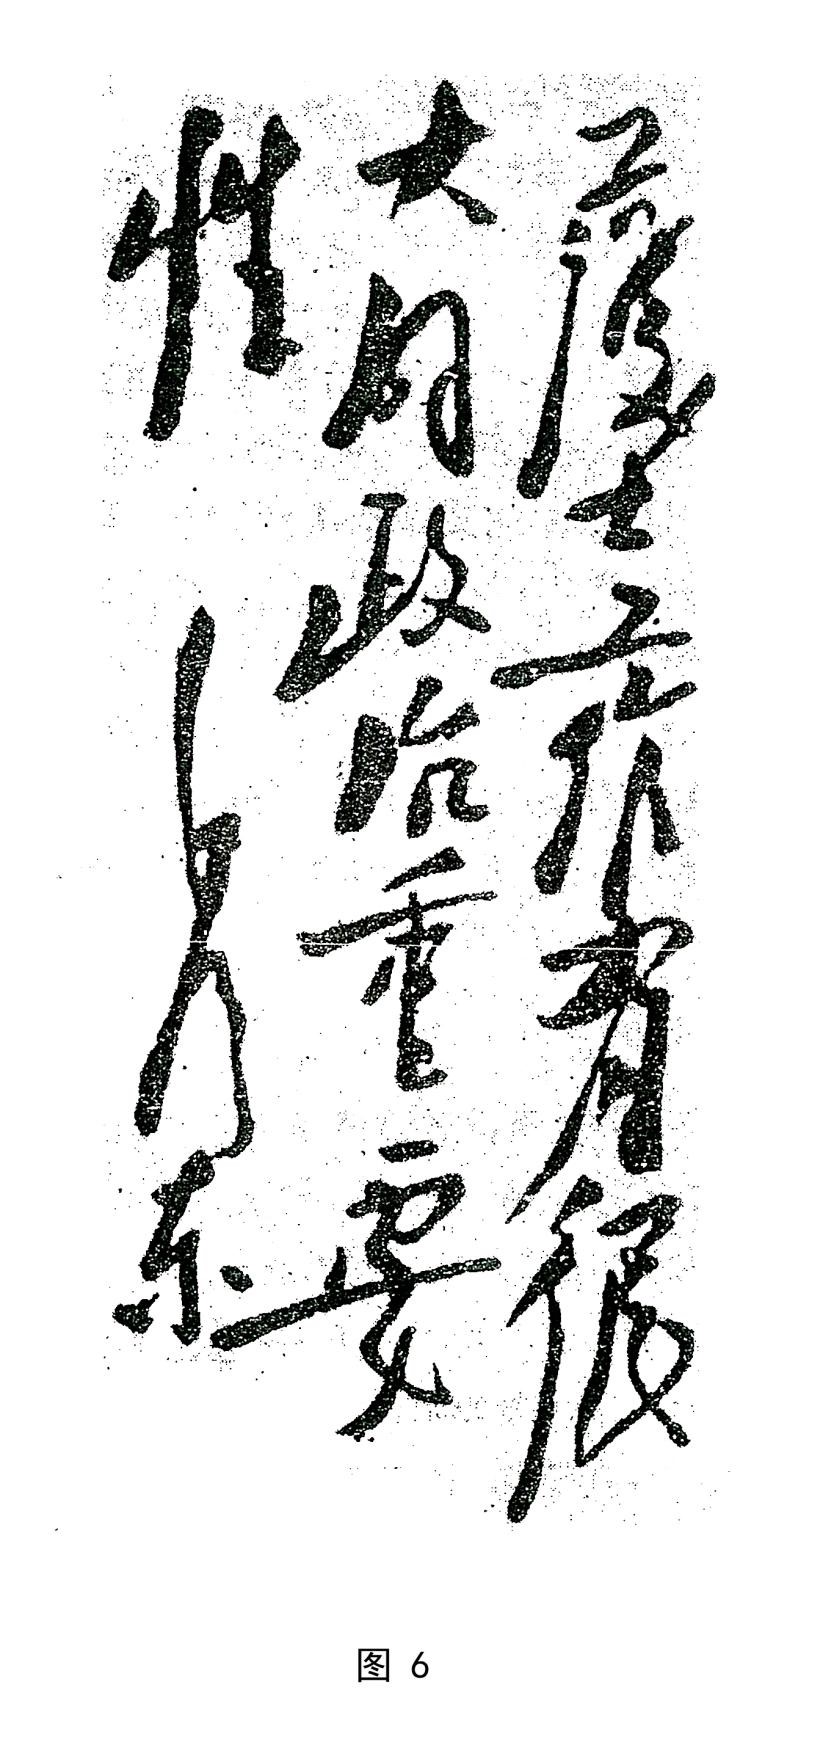 護士工作有很
大的政治重要
性 毛泽东
图 6